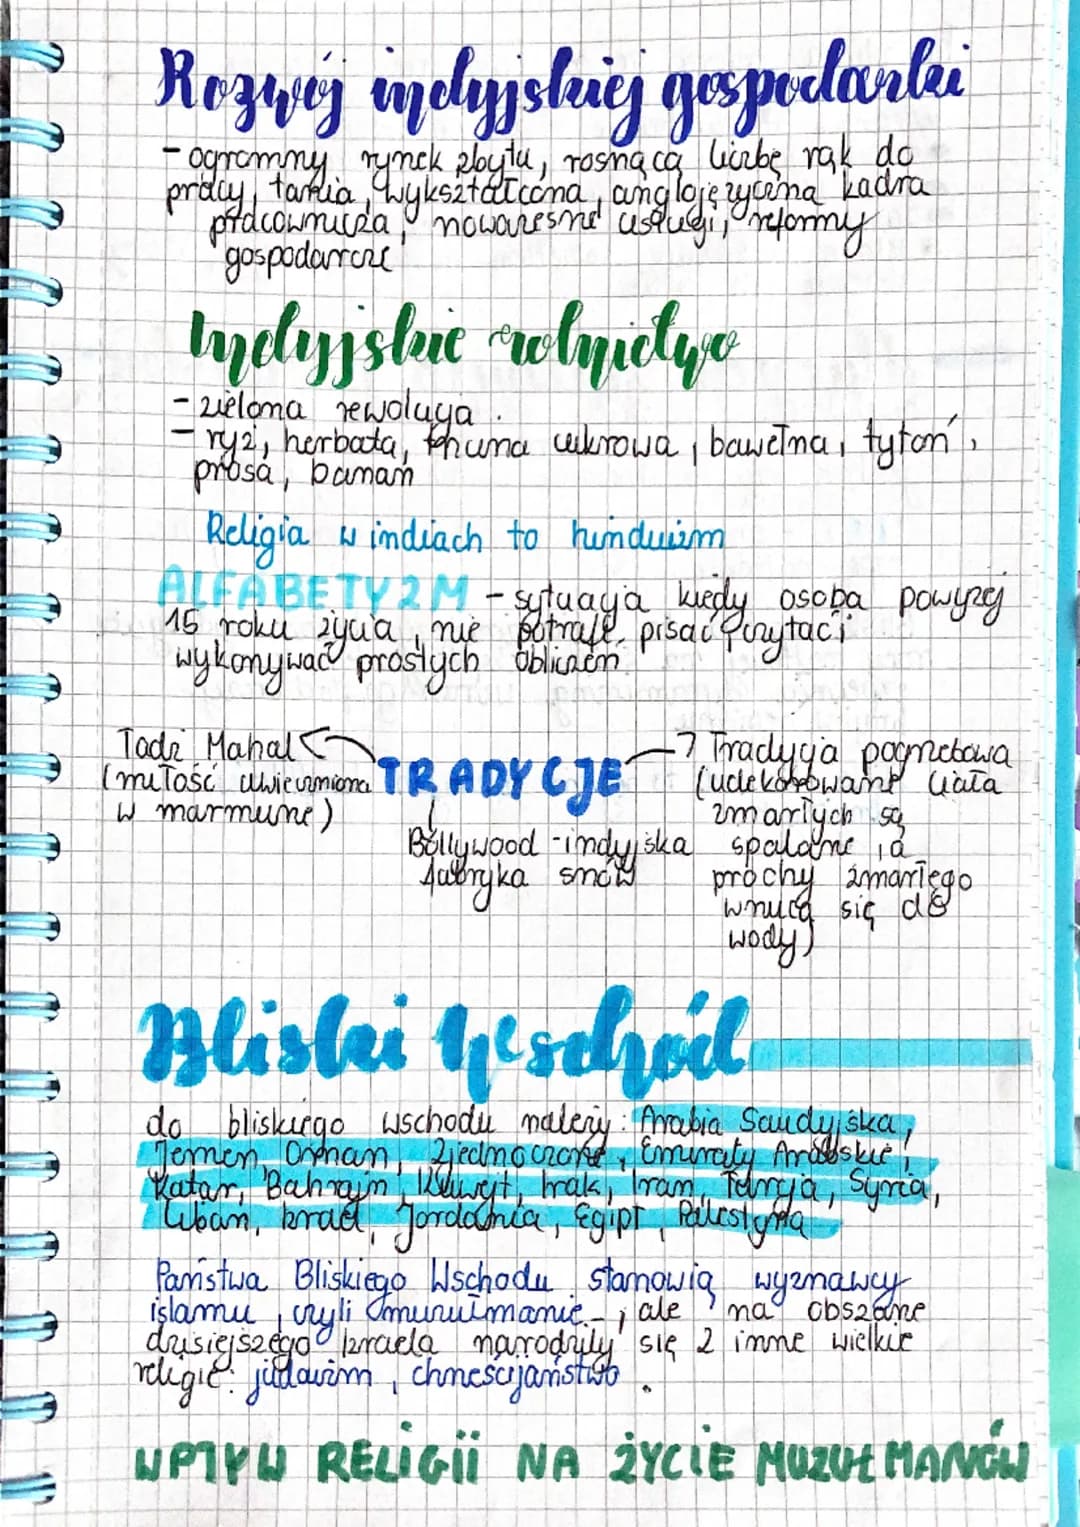 Rozwój indyjskiej gospodarki
- ogromny rynek zbytu, rosnącą liczbę rąk do
pracy, tania, wykształcona, anglojęzyczna kadra
pracownicza, nowoczesne usługi, reformy
gospodarcze
Indyjskie rolnictwo
- zielona rewolucja.
- ryż, herbata, trzcina cukrowa, bawełna, tytoń,
prosa, banan
Religia w indiach to hinduizm
ALFABETYZM - sytuacja kiedy osoba powyżej
15 roku życia, nie potrafi pisać, czytać i
wykonywać prostych obliczeń
Tadż Mahal
(miłość uwieczniona
w marmurze)
TRADYCJE
Bollywood - indyjska
fabryka snów
Tradycja pogrzebowa
(udekorowane ciała
zmarłych są
spalane, a
prochy zmarłego
wrzuca się do
wody)
Bliski Wschód
do bliskiego wschodu należy: Arabia Saudyjska,
Jemen, Oman, Zjednoczone, Emiraty Arabskie,
Katar, Bahrajn, Kuwejt, Irak, Iran, Turcja, Syria,
Liban, Izrael, Jordania, Egipt, Palestyna
Państwa Bliskiego Wschodu stanowią wyznawcy
islamu, czyli muzułmanie -, ale na obszarze
dzisiejszego Izraela narodziły się 2 inne wielkie
religie: judaizm, chrześcijaństwo.
WPŁYW RELIGII NA ŻYCIE MUZUŁMANÓW